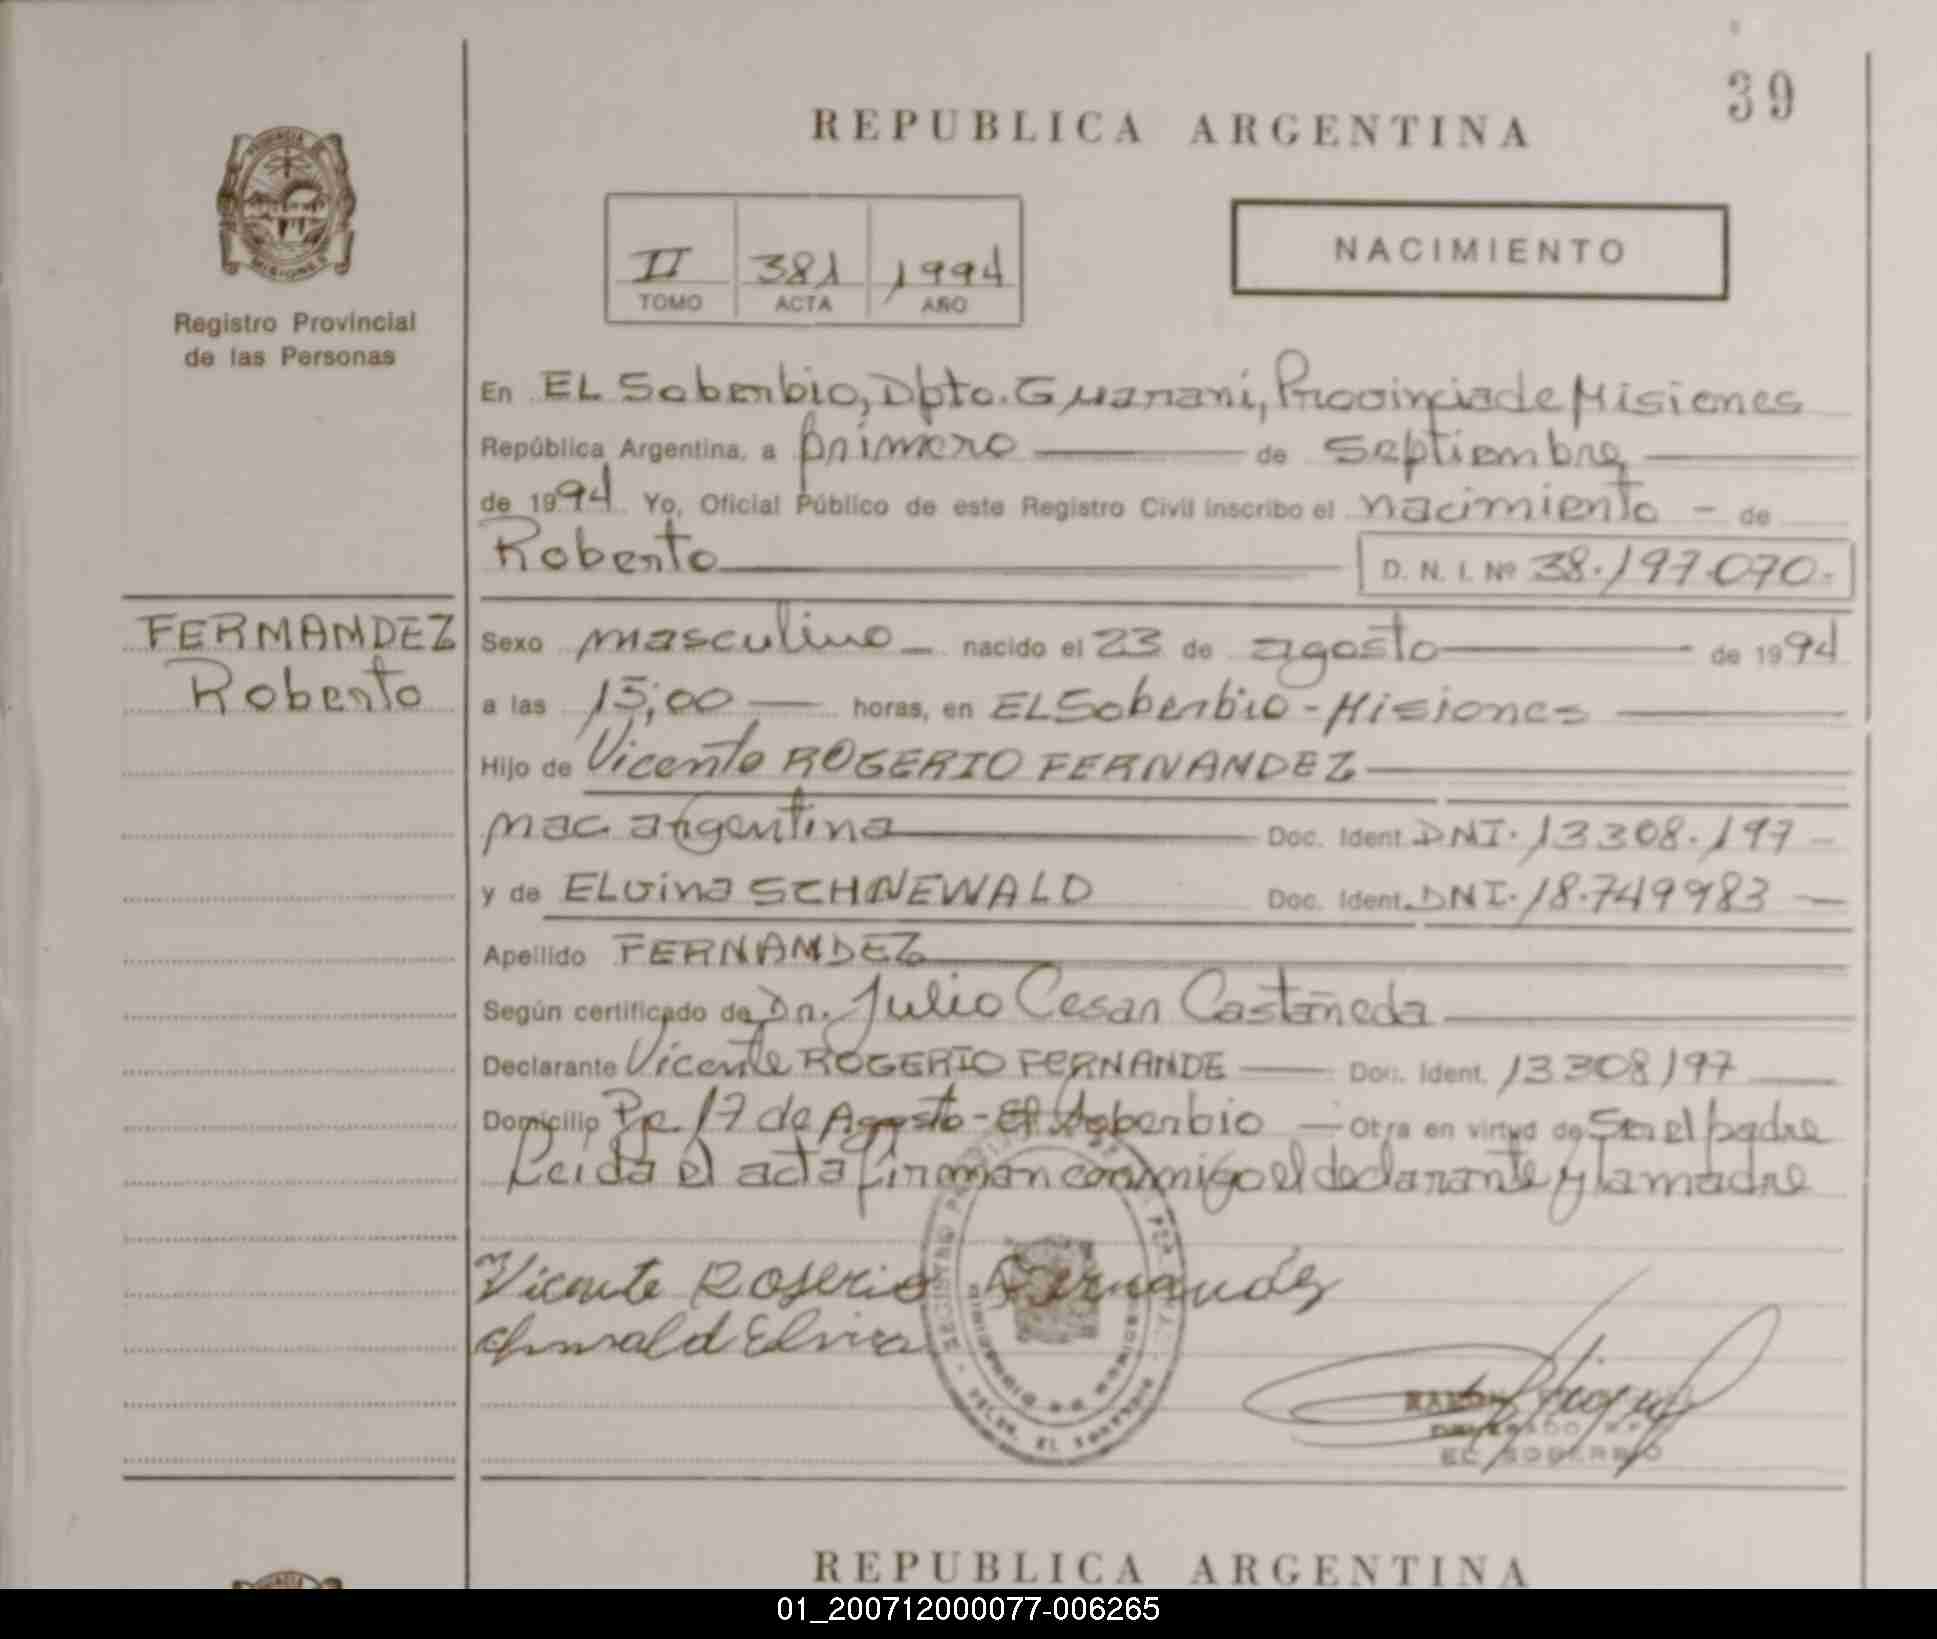 39
REPUBLICA ARGENTINA
PROVINCIA
MISIONES
Registro Provincial
de las Personas
II 381 1994
TOMO ACTA AÑO
NACIMIENTO
En EL Soberbio, Dpto. Guaraní, Provincia de Misiones
República Argentina, a primero de septiembre
de 1994 Yo, Oficial Público de este Registro Civil inscribo el nacimiento - de
Roberto
D. N. I. Nº 38.197.070.-
FERNANDEZ
Roberto
Sexo masculino nacido el 23 de agosto de 1994
a las 15,00 horas, en EL Soberbio - Misiones
Hijo de Vicente ROGERIO FERNANDEZ
nac. argentina Doc. Ident. DNI. 13308.197 -
y de ELvina SCHNEWALD Doc. Ident. DNI. 18.749983 -
Apellido FERNANDEZ
Según certificado de Dn. Julio Cesar Castañeda
Declarante Vicente ROGERIO FERNANDE Doc. Ident. 13308197
Domicilio Pje. 17 de Agosto - El Soberbio - Otra en virtud de Ser el padre
Leida el acta firman conmigo el declarante y la madre
Vicente Rogerio Fernandez
Elvira
EL SOBERBIO
REPUBLICA ARGENTINA
01_200712000077-006265